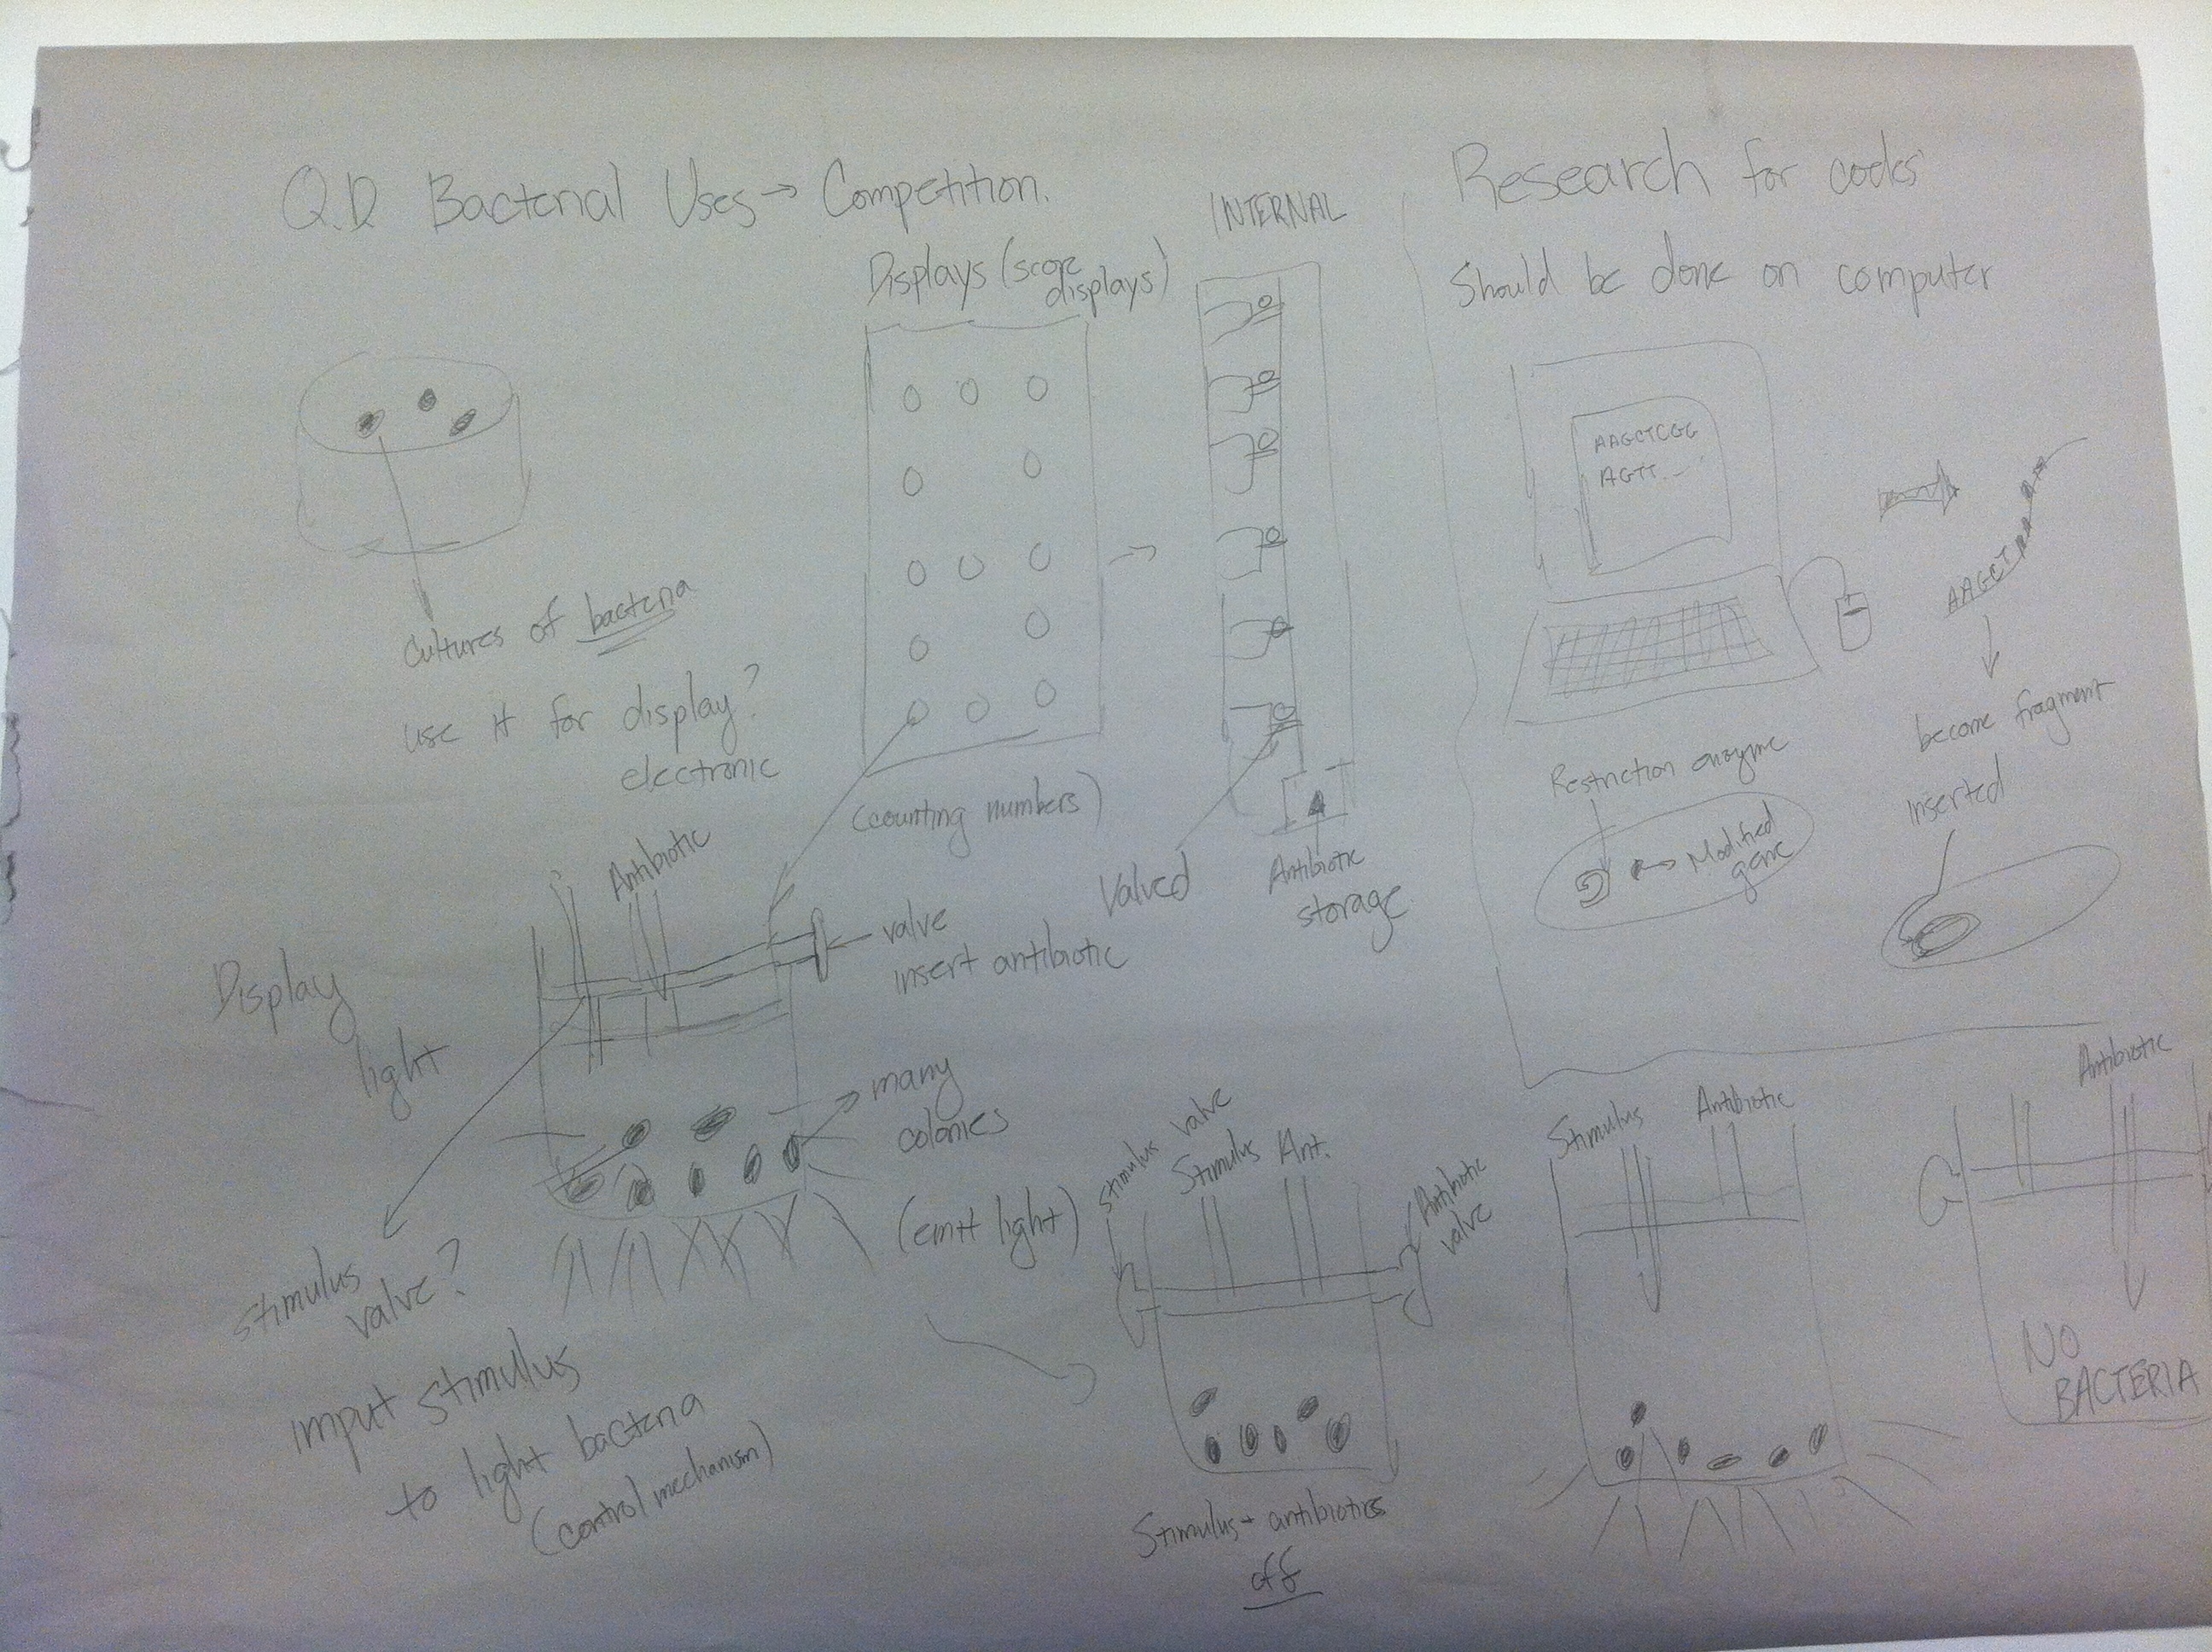 Q.D Bacterial Uses → Competition.
Cultures of bacteria
use it for display?
electronic
Displays (score
displays)
(counting numbers)
INTERNAL
Valved
Antibiotic
storage
Research for codes
Should be done on computer
AAGCTCGG
AGTT...
AAGCT
become fragment
inserted
Restriction enzyme
Modified
gene
Display
light
Antibiotic
valve
insert antibiotic
many
colonies
(emit light)
stimulus
valve?
input stimulus
to light bacteria
(control mechanism)
stimulus valve
Stimulus
Ant.
Antibiotic
valve
Stimulus + antibiotics
off
Stimulus
Antibiotic
Antibiotic
NO
BACTERIA